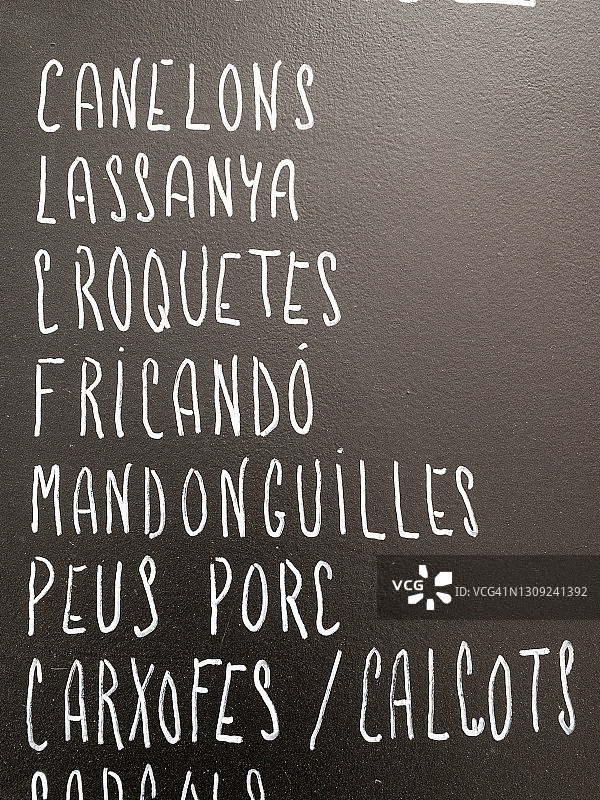 CANELONS
LASSANYA
CROQUETES
FRICANDÓ
MANDONGUILLES
PEUS PORC
VCG ID: VCG41N1309241392
CARXOFES / CALÇOTS